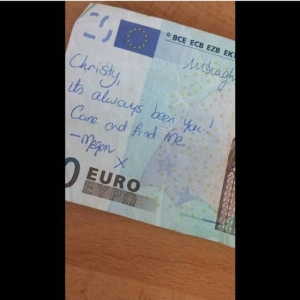 BCE ECB EZB EKT
Christy,
It's always been you!
Come and find me
-Megan
X
0 EURO
EYPΩ